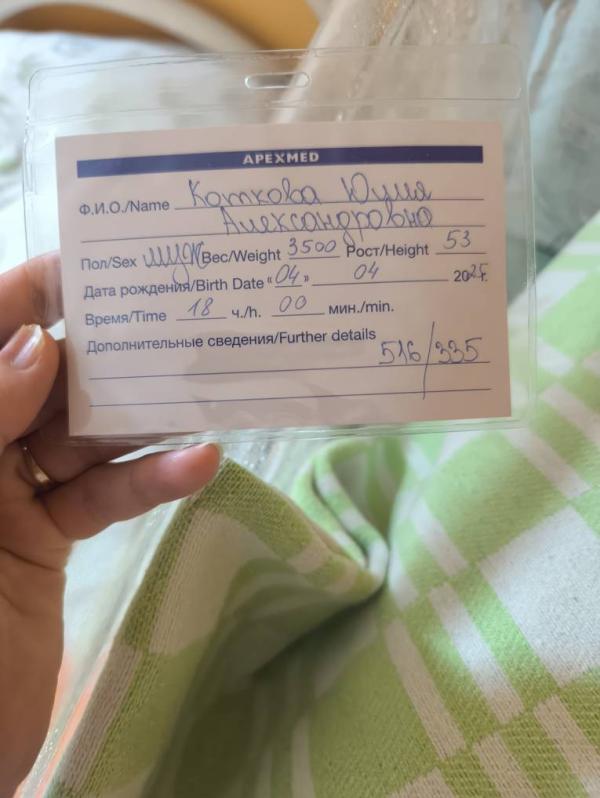 APEXMED
Ф.И.О./Name Коткова Юлия
Александровна
Пол/Sex муж Вес/Weight 3500 Рост/Height 53
Дата рождения/Birth Date “04” 04 2025г.
Время/Time 18 ч./h. 00 мин./min.
Дополнительные сведения/Further details
516/335